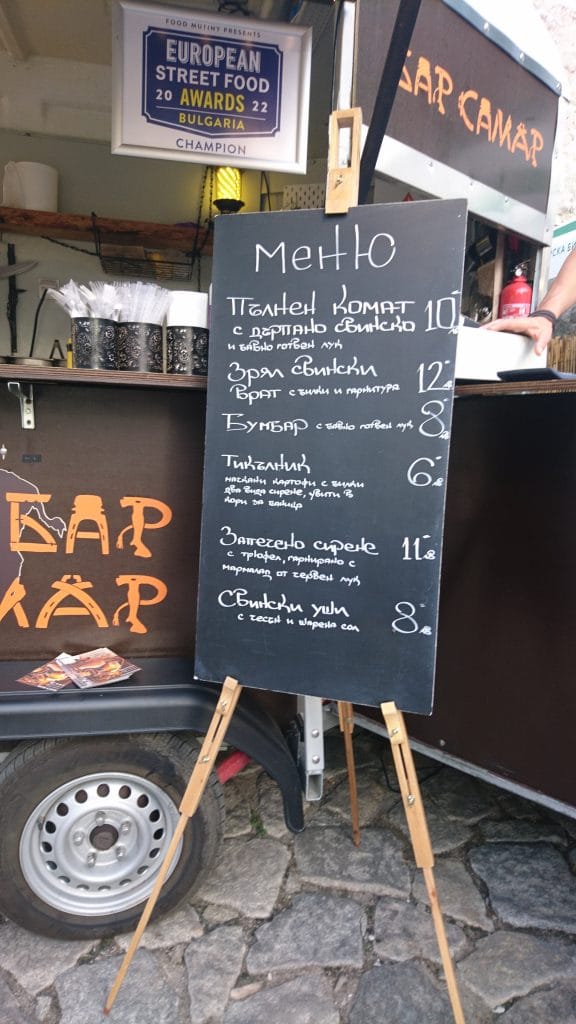 FOOD MUTINY PRESENTS
EUROPEAN
STREET FOOD
20 AWARDS 22
BULGARIA
CHAMPION
БАР САМАР
МЕНЮ
Пълнен комат 10
с дърпано свинско
и бавно готвен лук
Зрял свински 12
врат с билки и гарнитура
Бумбар с бавно готвен лук 8
Тиквлник 6
мачкани картофи с билки
два вида сирене, увити в
кори за баница
Запечено сирене 11
с трюфел, гарнирано с
мармалад от червен лук
Свински уши 8
с чесън и шарена сол
БАР
МАР